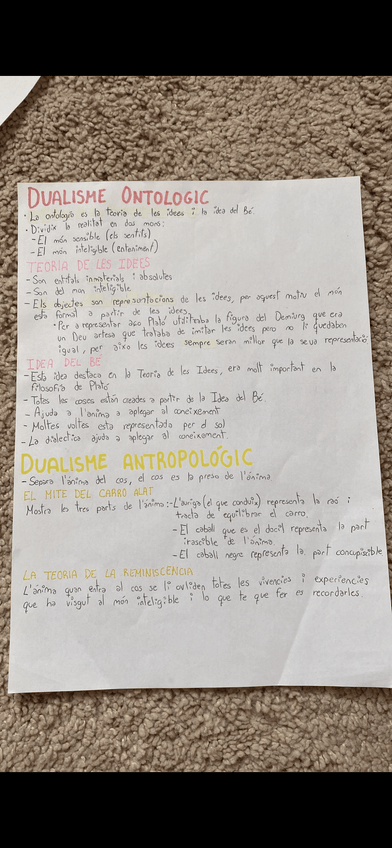 DUALISME ONTOLOGIC
· La ontologia es la teoria de les idees i la idea del Bé.
· Dividix la realitat en dos mons:
- El món sensible (els sentits)
- El món inteligible (enteniment)
TEORIA DE LES IDEES
- Son entitats inmaterials i absolutes
- Son del mon inteligible
- Els objectes son representacions de les idees, per aquest motiu el món
esta format a partir de les idees.
· Per a representar aço Plató utilitzaba la figura del Demiurg que era
un Deu artesa que trataba de imitar les idees pero no li quedaben
igual, per aixo les idees sempre seran millor que la seua representació
IDEA DEL BÉ
- Esta idea destaca en la Teoria de les Idees, era molt important en la
filosofia de Plató
- Totes les coses están creades a partir de la Idea del Bé
- Ajuda a l'anima a aplegar al coneixement
- Moltes voltes esta representada per el sol
- La dialectica ajuda a aplegar al coneixament.
DUALISME ANTROPOLÓGIC
- Separa l'ánima del cos, el cos es la preso de l'ánima
EL MITE DEL CARRO ALAT
Mostra les tres parts de l'ánima: - L'auriga (el que conduix) representa la raó i
tracta de equilibrar el carro.
- El caball que es el docil representa la part
irascible de l'ánima.
- El caball negre representa la part concupiscible
LA TEORIA DE LA REMINISCENCIA
L'ánima quan entra al cos se li obliden totes les vivencies i experiencies
que ha viscut al món inteligible i lo que te que fer es recordarles.